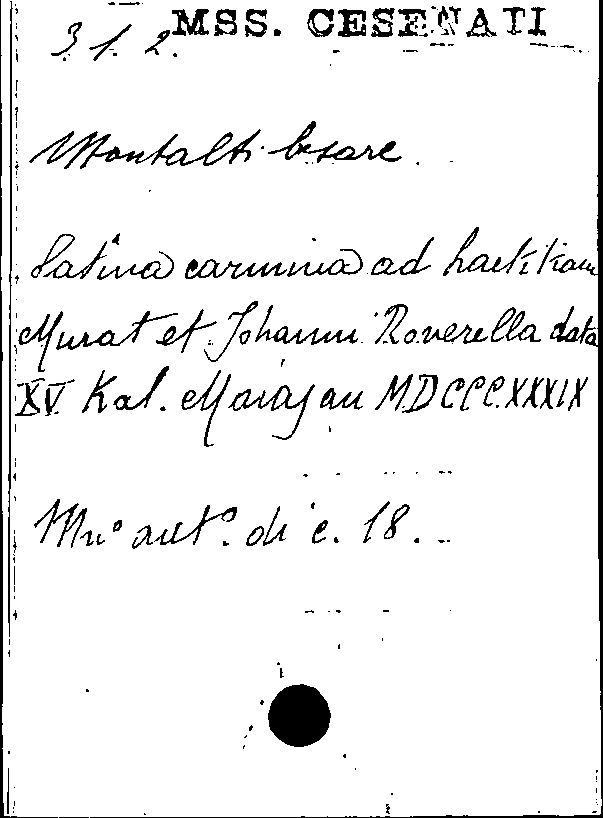 MSS. CESENATI
3. 1. 2.
Montalti Cesare.
Latina carmina ad
Murat et Johanni Roverella data
XV Kal. Majas an MDCCCXXXIX
Mnº autº. di c. 18.